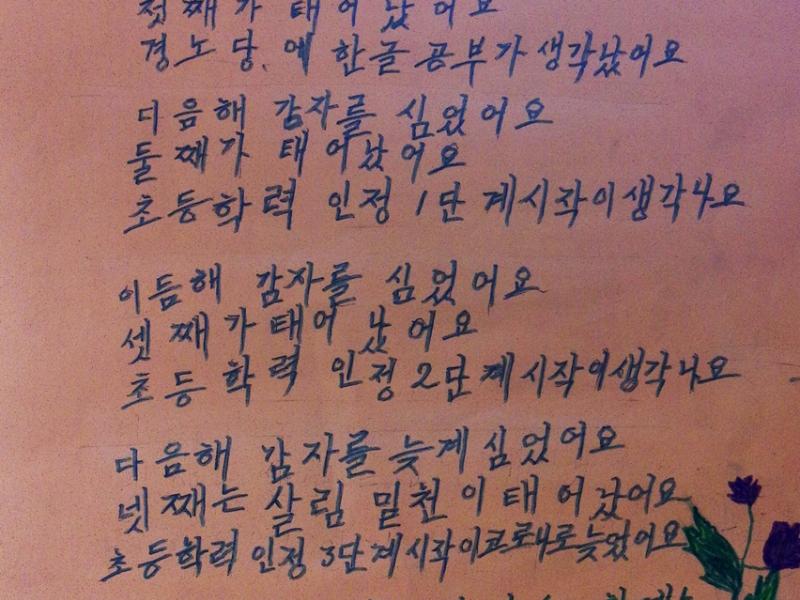 첫째가 태어났어요
경노당.에 한글 공부가 생각났어요
다음해 감자를 심었어요
둘째가 태어났어요
초등학력 인정 1단계시작이생각나요
이듬해 감자를 심었어요
셋째가태어났어요
초등학력 인정 2단계시작이생각나요
다음해 감자를 늦게 심었어요
넷째는 살림 밑천이 태어났어요
초등학력 인정 3단계시작이코로나로늦었어요